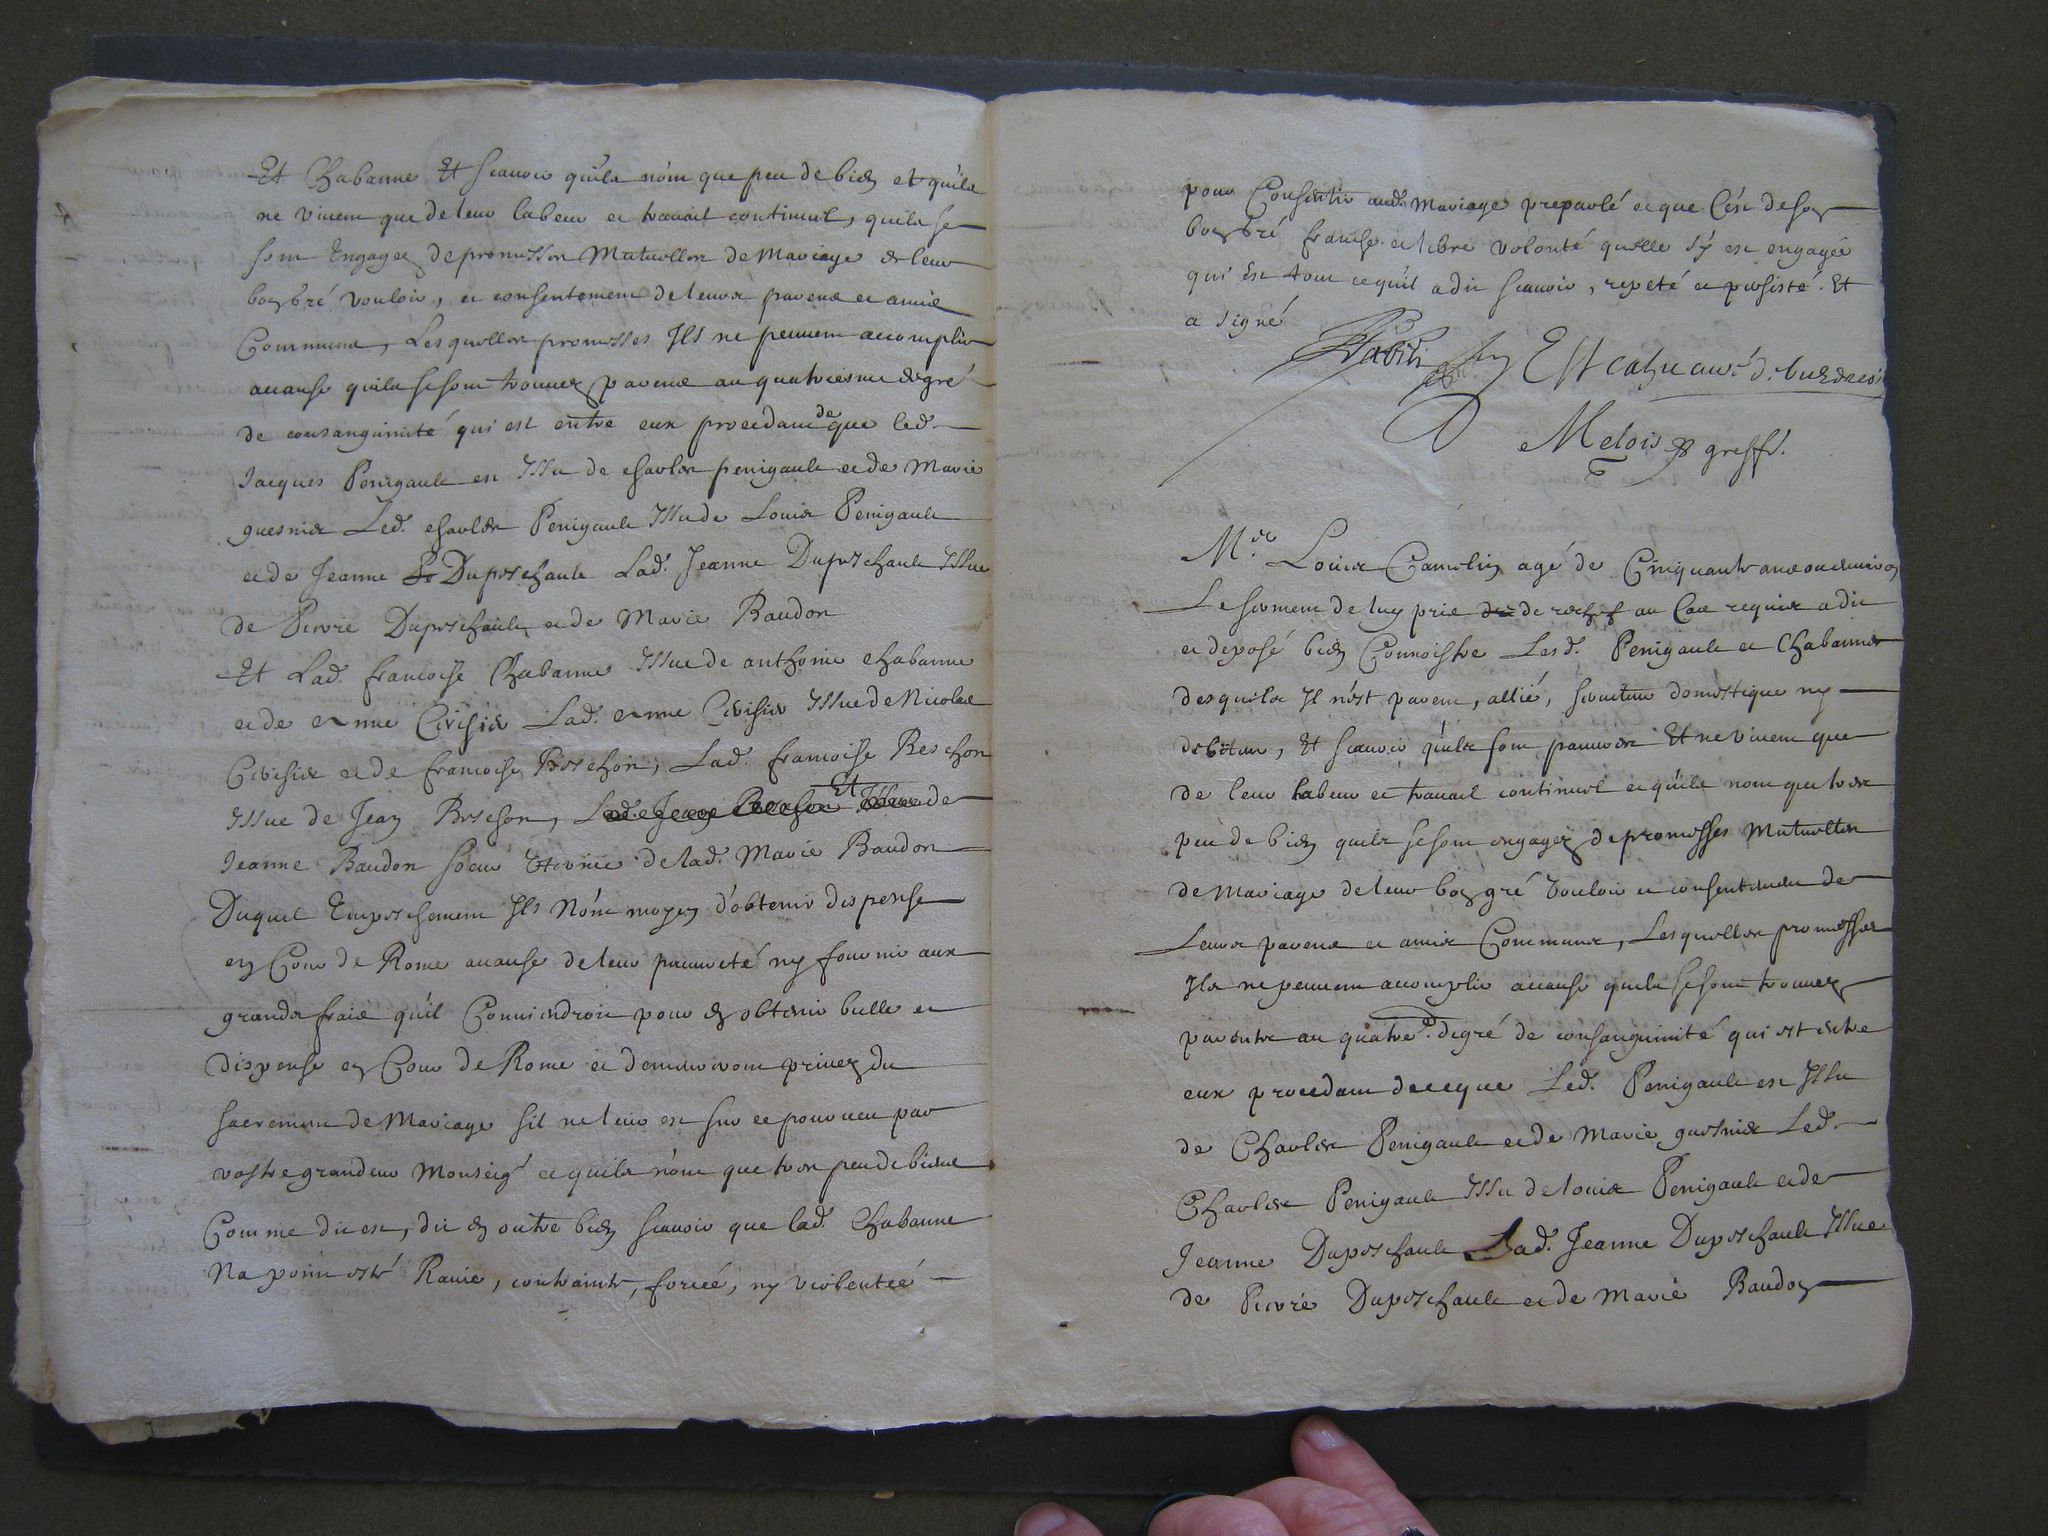 Et Chabanne Et scauoir quils nont que peu de bien et quils
ne viuent que de leur labeur et trauail continuel, quils se
sont Engagez de promesses Mutuelles de Mariage de leur
bon gré vouloir, et consentement de leurs parens et amis
Communs, Lesquelles promesses Ils ne peuuent accomplir
acause quils se sont trouuez parens au quatriesme degré
de consanguinité qui est entre eux procedant de que led.
Jacques Penigault est Issu de charles penigault et de Marie
guesnier Led. charles Penigault Issu de Louis Penigault
et de Jeanne Duposchault Lad. Jeanne Duposchault Issue
de Pierre Duposchault et de Marie Baudon
Et Lad. francoise Chabanne Issue de anthoine chabanne
et de anne Civisier Lad. anne Civisier Issue de Nicolas
Civisier et de francoise Bischon, Lad. francoise Beschon
Issue de Jean Beschon, Et de
Jeanne Baudon soeur Uterine de lad. Marie Baudon
Duquel Empeschement Ils Nont moyen d'obtenir dispense
en Cour de Rome acause de leur pauureté ny fournir aux
grands frais qu'il Conuiendroit pour en obtenir bulle et
dispense en Cour de Rome et demeureront priuez du
sacrement de Mariage sil ne leur est sur ce pourueu par
vostre grandeur Monseigr et quils nont que tres peu de biens
Comme dit est, dit en outre bien scauoir que lad. Chabanne
Na point esté Rauie, contrainte, forcée, ny violentée
pour Consentir aud. Mariage preparlé et que C'est de son
bon gré franche et libre volonté quelle s'y est engagée
qui est tout ce quil a dit scauoir, repeté et persisté. Et
a signé
Melois greffr.
Mre Louis Camelin agé de Cinquante ans ou enuiron
Le serment de luy pris de rechef au Cas requis a dit
et deposé bien Connoistre Lesd. Penigault et Chabannes
desquels Il n'est parent, allié, seruiteur domestique ny
debiteur, Et scauoir quils sont pauures Et ne viuent que
de leur labeur et trauail continuel et quils nont que tres
peu de bien quils se sont engagez de promesses Mutuelles
de Mariage de leur bon gré vouloir et consentement de
Leurs parens et amis Communs, Lesquelles promesses
Ils ne peuuent accomplir acause quils se sont trouuez
parents au quatre.e degré de consanguinité qui est entre
eux procedant de ce que Led. Penigault est Issu
de Charles Penigault et de Marie guesnier Led.
Charles Penigault Issu de louis Penigault et de
Jeanne Duposchault Lad. Jeanne Duposchault Issue
de Pierre Duposchault et de Marie Baudon